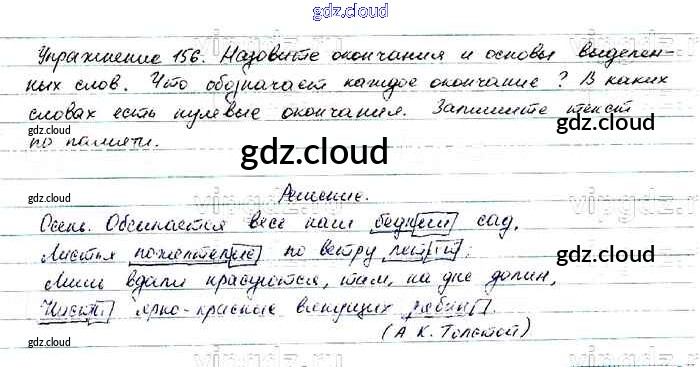 gdz.cloud
Упражнение 156. Назовите окончания и основы выделен-
ных слов. Что обозначает каждое окончание? В каких
словах есть нулевые окончания. Запишите текст
gdz.cloud gdz.cloud
по памяти.
gdz.cloud
gdz.cloud Решение. gdz.cloud
Осень. Обсыпается весь наш бедный сад,
Листья пожелтелые по ветру летят;
gdz.cloud
Лишь вдали красуются, там, на дне долин,
Кисти ярко-красные вянущих рябин.
(А К. Толстой)
gdz.cloud gdz.cloud